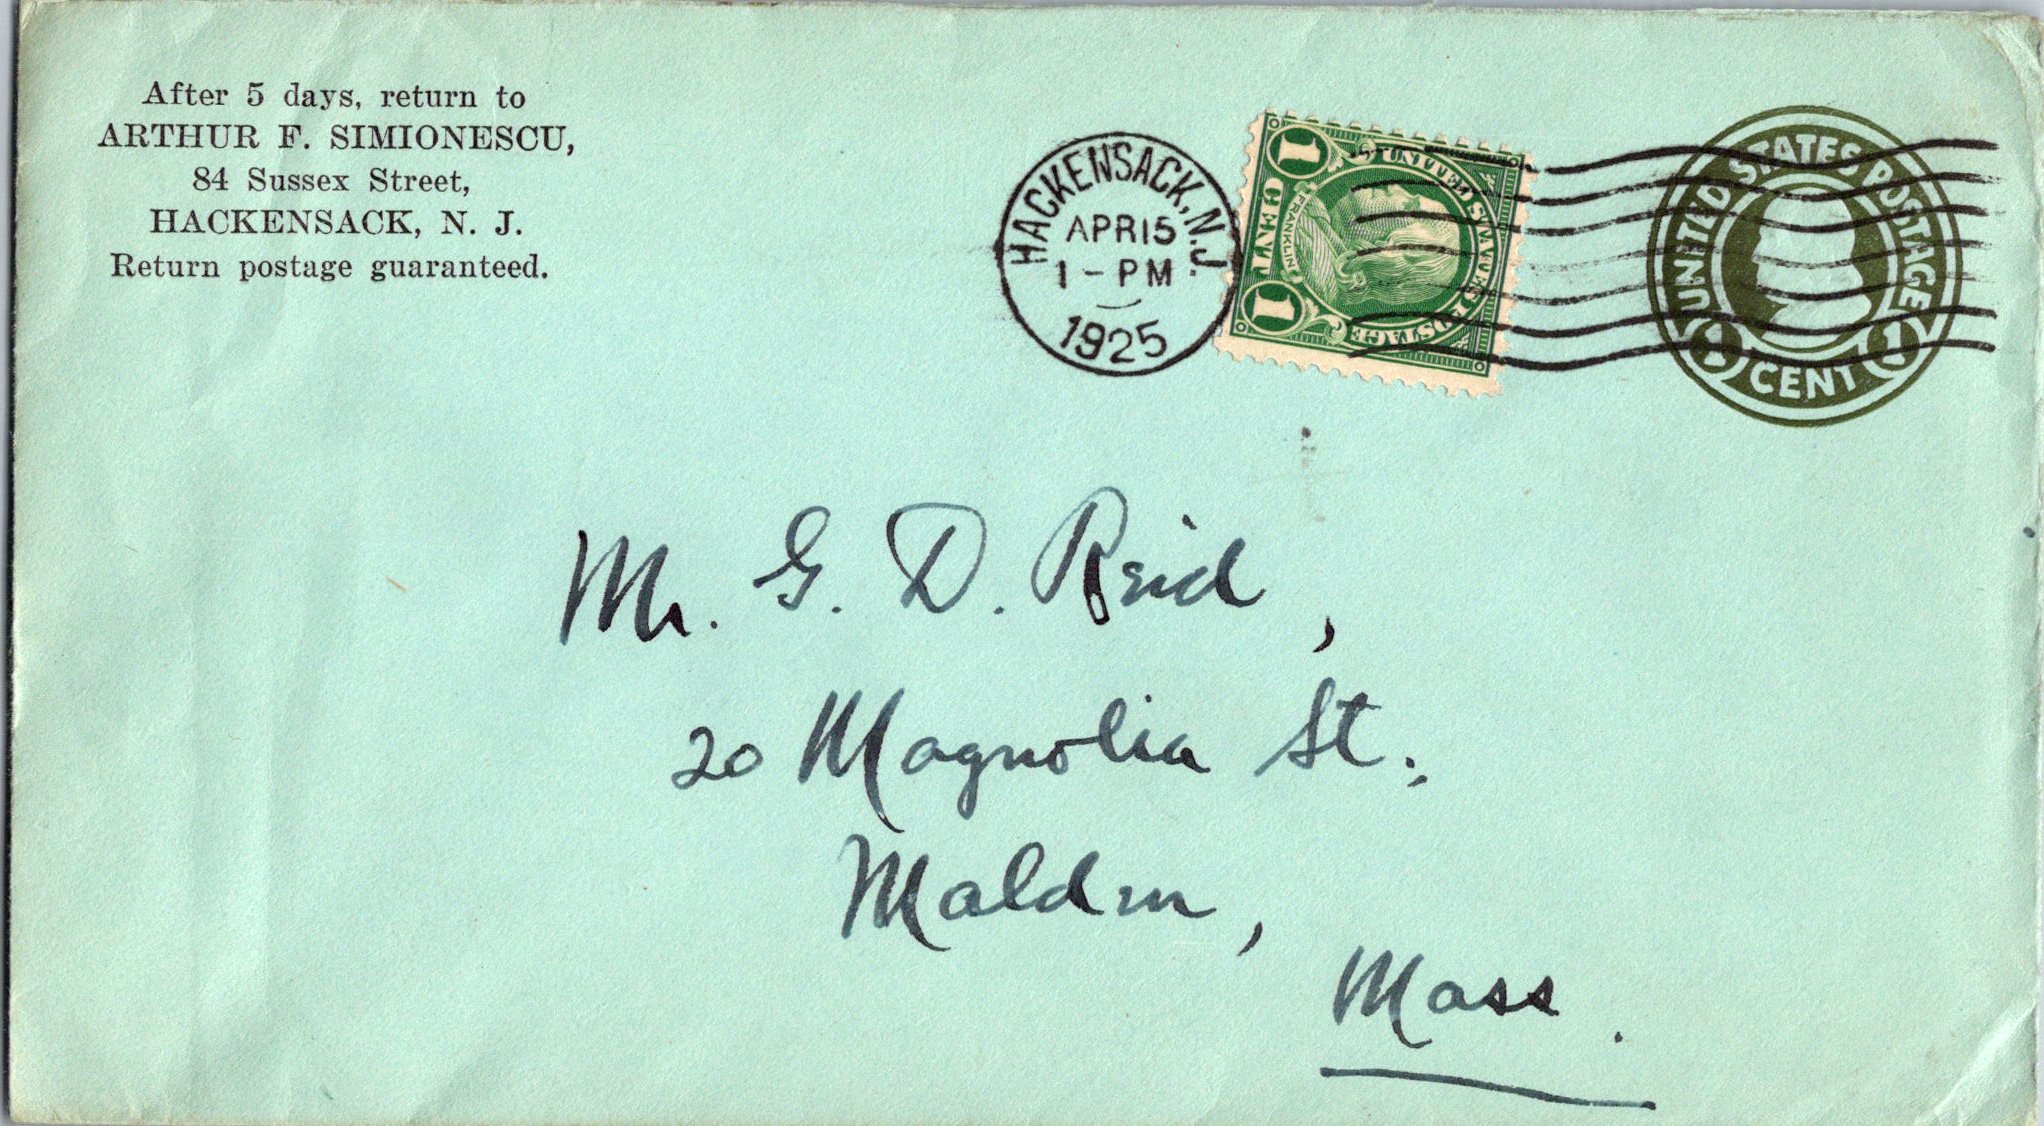 After 5 days, return to
ARTHUR F. SIMIONESCU,
84 Sussex Street,
HACKENSACK, N. J.
Return postage guaranteed.
HACKENSACK, N.J.
APR 15
1 - PM
1925
UNITED STATES POSTAGE
1 CENT 1
FRANKLIN
UNITED STATES POSTAGE
1 CENT 1
Mr. G. D. Reid,
20 Magnolia St.,
Malden,
Mass.